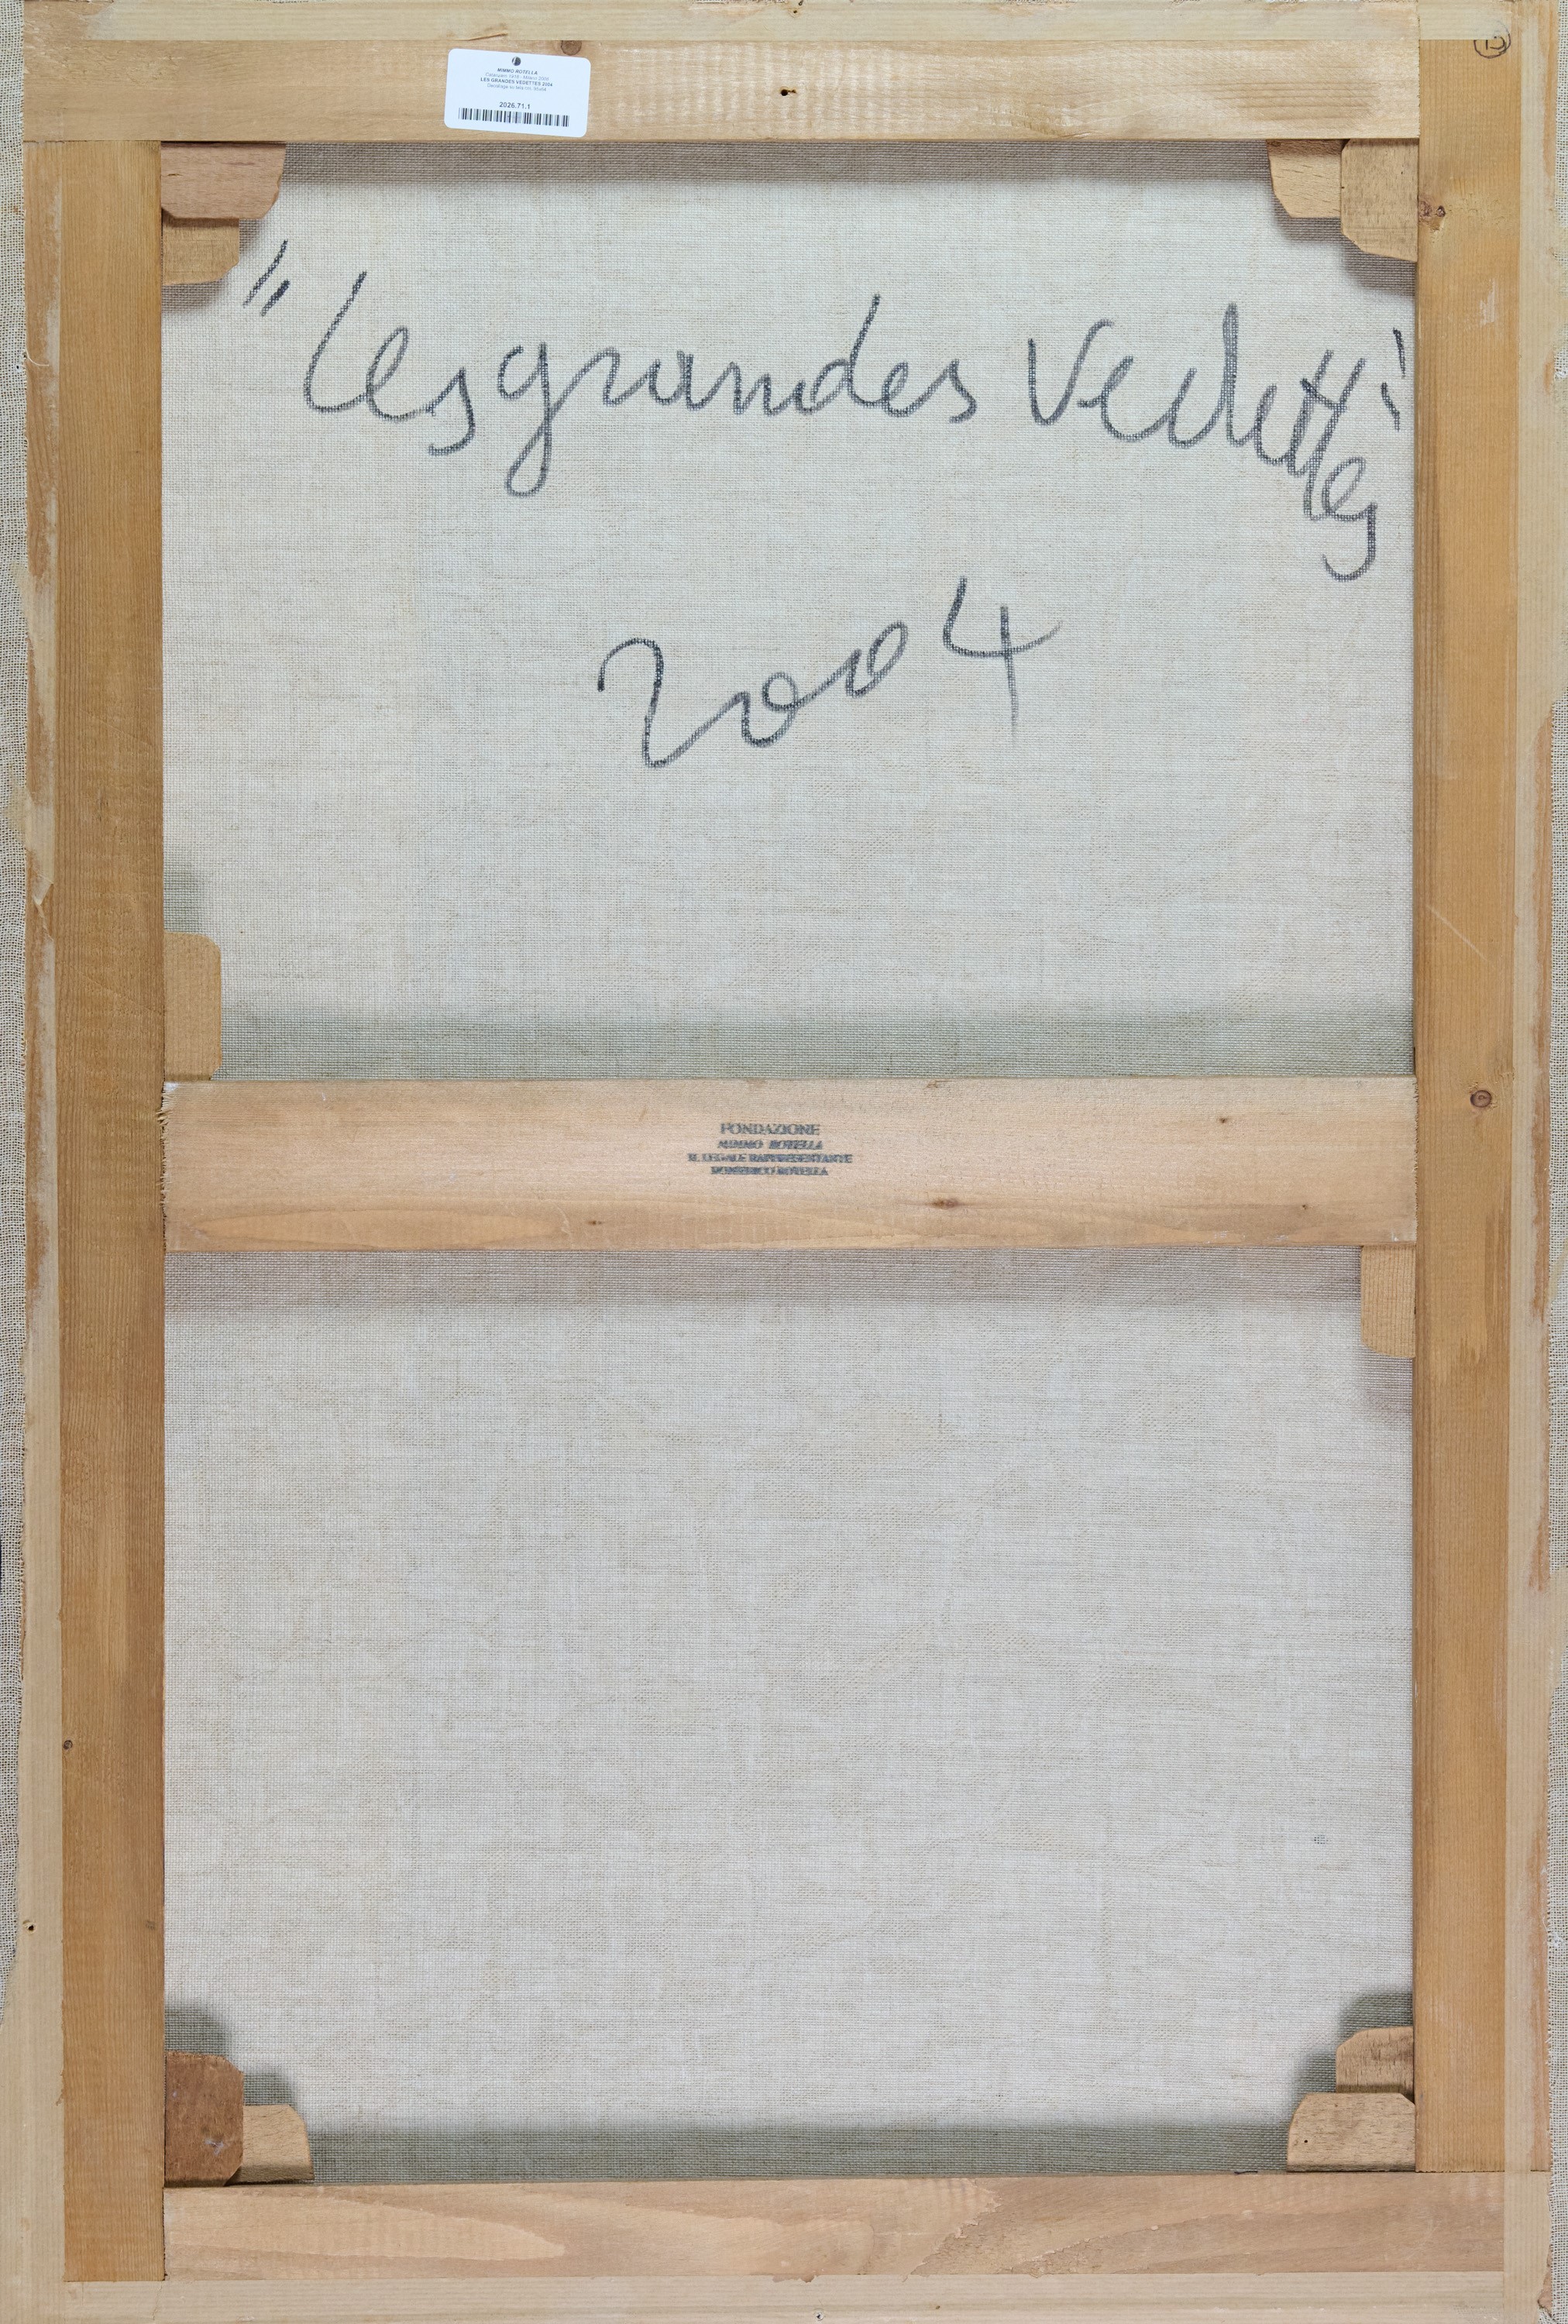 MIMMO ROTELLA
Catanzaro 1918 - Milano 2006
LES GRANDES VEDETTES 2004
2026.71.1
" Les grandes Vedettes "
2004
FONDAZIONE
MIMMO ROTELLA
IL LEGALE RAPPRESENTANTE
DOMENICO ROTELLA